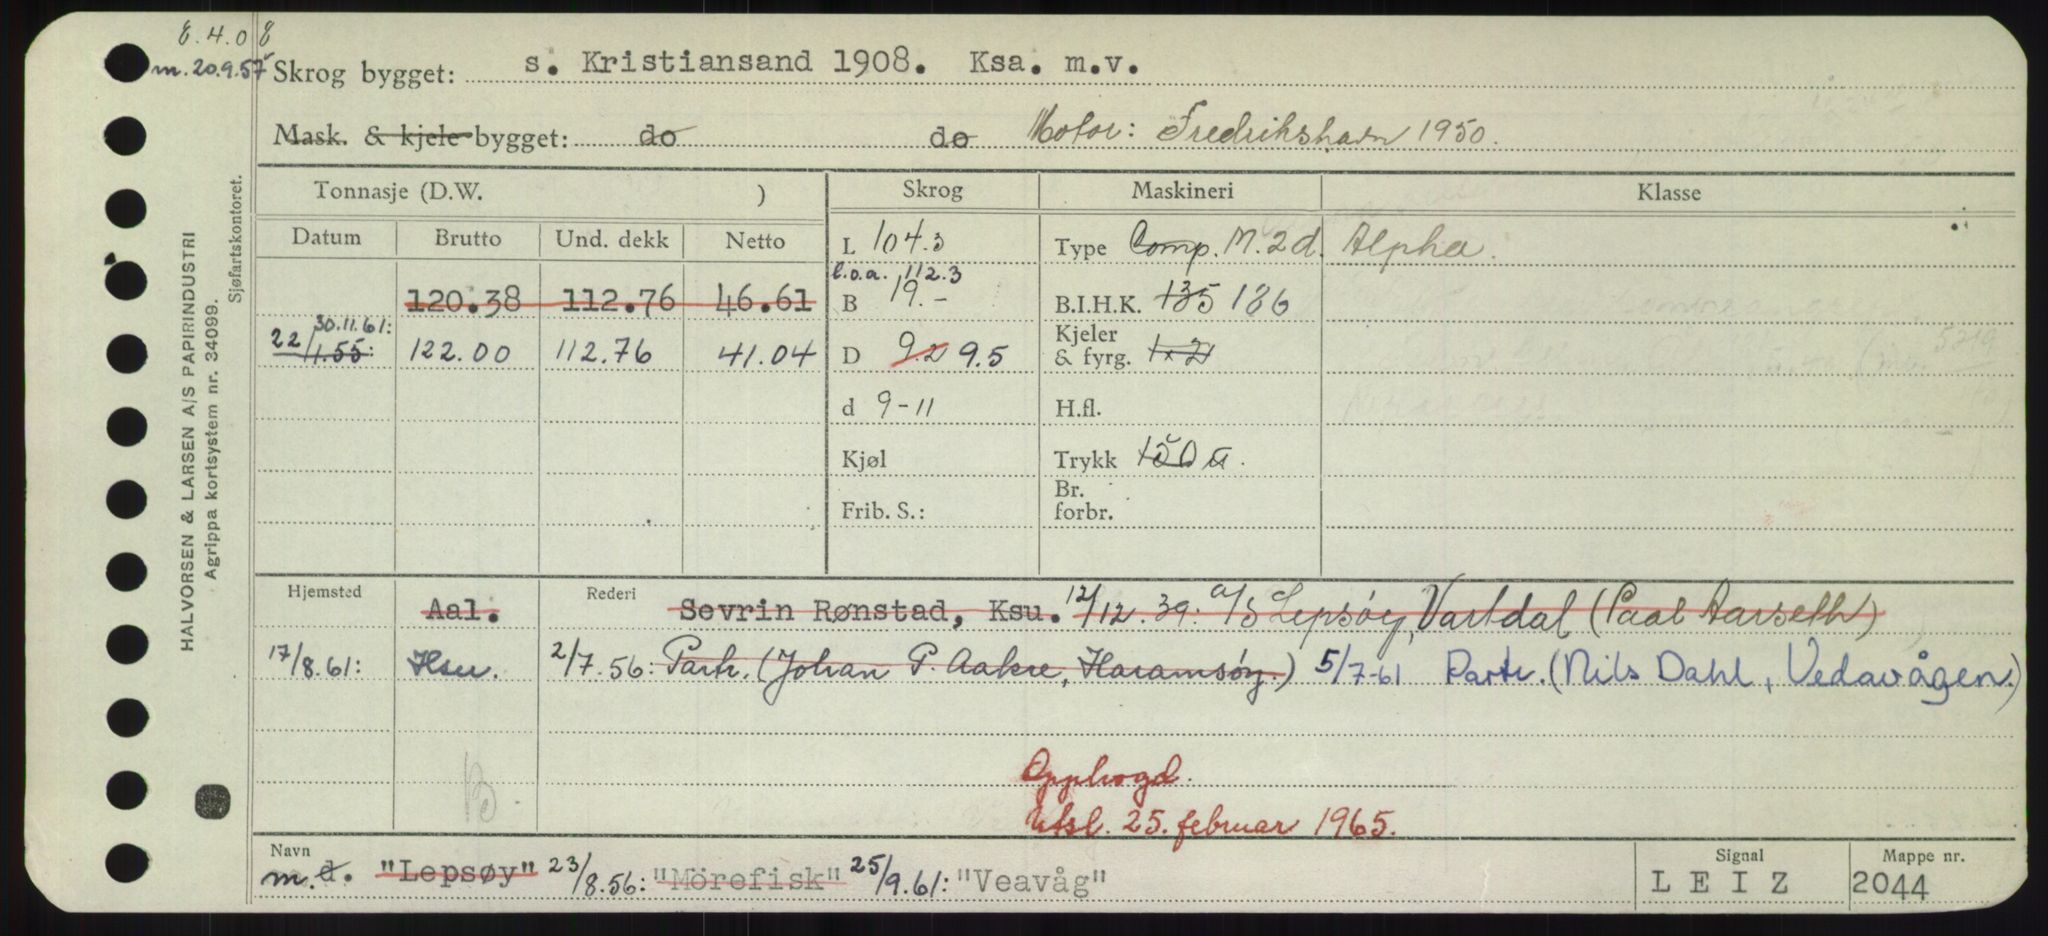 8.4.08
m. 20.9.57
Skrog bygget: s. Kristiansand 1908. Ksa. m.v.
Mask. & kjele bygget: do do Motor: Fredrikshavn 1950.
Tonnasje (D.W. ) Skrog Maskineri Klasse
Datum Brutto Und. dekk Netto
L 104.3 Type Comp. M. 2d. Alpha.
l.o.a. 112.3
120.38 112.76 46.61 B 19.- B.I.H.K. 135 186
30.11.61:
22/1.55: 122.00 112.76 41.04 D 9.2 9.5 Kjeler & fyrg. 1x2
d 9-11 H.fl.
Kjøl Trykk 150
Frib. S.: Br. forbr.
Hjemsted Aal. Rederi Sevrin Rønstad, Ksu. 12/12.39: A/S Lepsøy, Vartdal (Paal Aarseth)
17/8.61: Hsu. 2/7.56: Partr. (Johan P. Aakre, Haramsøy) 5/7-61 Partr. (Nils Dahl, Vedavågen.)
B
Opphogd.
Utsl. 25. februar 1965.
Navn Signal Mappe nr.
m. d. "Lepsøy" 23/8.56: "Mörefisk" 25/9.61: "Veavåg" L E I Z 2044
HALVORSEN & LARSEN A/S PAPIRINDUSTRI
Agrippa kortsystem nr. 34099.
Sjøfartskontoret.